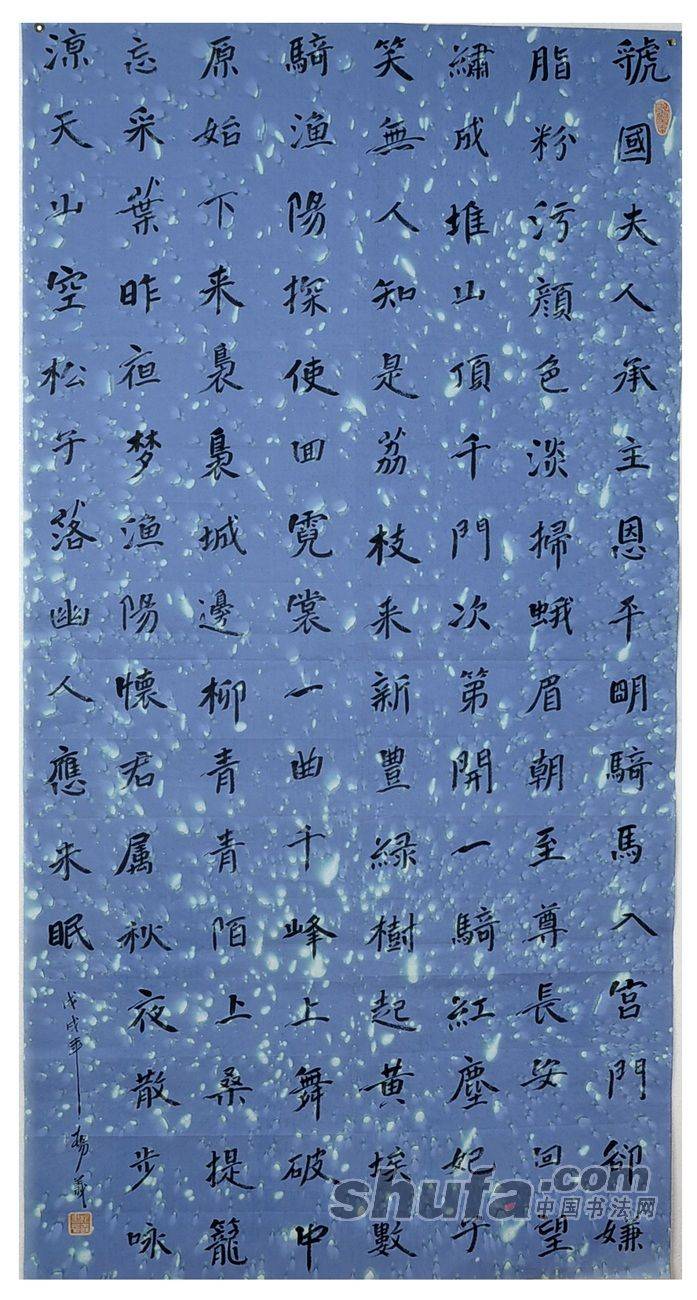 虢國夫人承主恩平明騎馬入宮門卻嫌
脂粉污顔色淡掃蛾眉朝至尊長安回望
繡成堆山頂千門次第開一騎紅塵妃子
笑無人知是荔枝来新豐緑樹起黃埃數
騎漁陽探使回霓裳一曲千峰上舞破中
原始下来裊裊城邊柳青青陌上桑提籠
忘采葉昨夜梦漁陽懷君属秋夜散步咏
涼天山空松子落幽人應未眠
戊戌年 楊
shufa.com
中国书法网